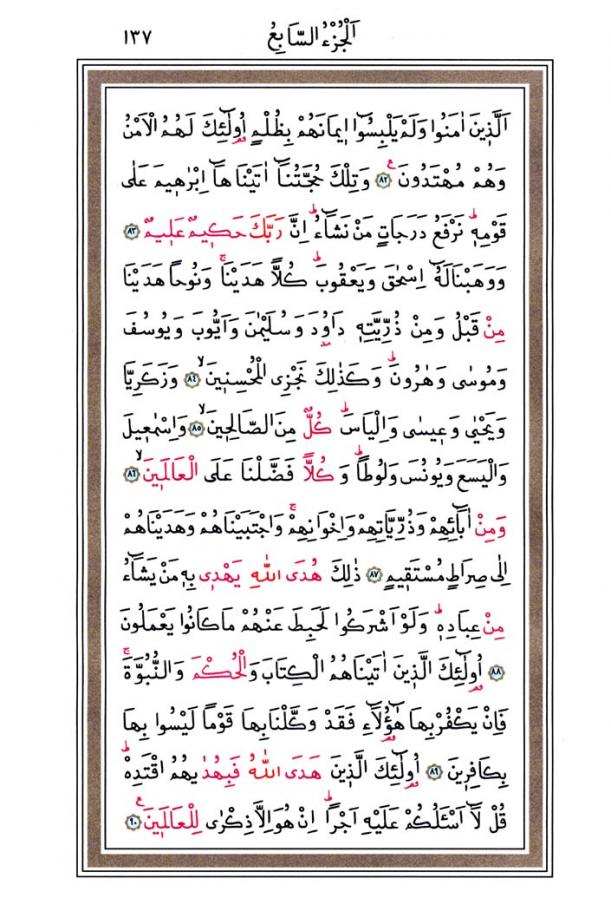 اَلْجُزْءُ السَّابِعُ ١٣٧
اَلَّذٖينَ اٰمَنُوا وَلَمْ يَلْبِسُٓوا اٖيمَانَهُمْ بِظُلْمٍ اُو۬لٰٓئِكَ لَهُمُ الْاَمْنُ
وَهُمْ مُهْتَدُونَؑ ﴿٨٢﴾ وَتِلْكَ حُجَّتُنَٓا اٰتَيْنَاهَٓا اِبْرٰهٖيمَ عَلٰى
قَوْمِهٖؕ نَرْفَعُ دَرَجَاتٍ مَنْ نَشَٓاءُؕ اِنَّ رَبَّكَ حَكٖيمٌ عَلٖيمٌ ﴿٨٣﴾
وَوَهَبْنَا لَهُٓ اِسْحٰقَ وَيَعْقُوبَؕ كُلًّا هَدَيْنَاۚ وَنُوحًا هَدَيْنَا
مِنْ قَبْلُ وَمِنْ ذُرِّيَّتِهٖ دَاوُ۫دَ وَسُلَيْمٰنَ وَاَيُّوبَ وَيُوسُفَ
وَمُوسٰى وَهٰرُونَؕ وَكَذٰلِكَ نَجْزِي الْمُحْسِنٖينَۙ ﴿٨٤﴾ وَزَكَرِيَّا
وَيَحْيٰى وَعٖيسٰى وَاِلْيَاسَؕ كُلٌّ مِنَ الصَّالِحٖينَۙ ﴿٨٥﴾ وَاِسْمٰعٖيلَ
وَالْيَسَعَ وَيُونُسَ وَلُوطًاؕ وَكُلًّا فَضَّلْنَا عَلَى الْعَالَمٖينَۙ ﴿٨٦﴾
وَمِنْ اٰبَٓائِهِمْ وَذُرِّيَّاتِهِمْ وَاِخْوَانِهِمْۚ وَاجْتَبَيْنَاهُمْ وَهَدَيْنَاهُمْ
اِلٰى صِرَاطٍ مُسْتَقٖيمٍ ﴿٨٧﴾ ذٰلِكَ هُدَى اللّٰهِ يَهْدٖي بِهٖ مَنْ يَشَٓاءُ
مِنْ عِبَادِهٖؕ وَلَوْ اَشْرَكُوا لَحَبِطَ عَنْهُمْ مَا كَانُوا يَعْمَلُونَ
﴿٨٨﴾ اُو۬لٰٓئِكَ الَّذٖينَ اٰتَيْنَاهُمُ الْكِتَابَ وَالْحُكْمَ وَالنُّبُوَّةَۚ
فَاِنْ يَكْفُرْ بِهَا هٰٓؤُ۬لَٓاءِ فَقَدْ وَكَّلْنَا بِهَا قَوْمًا لَيْسُوا بِهَا
بِكَافِرٖينَ ﴿٨٩﴾ اُو۬لٰٓئِكَ الَّذٖينَ هَدَى اللّٰهُ فَبِهُدٰيهُمُ اقْتَدِهْؕ
قُلْ لَٓا اَسْـَٔلُكُمْ عَلَيْهِ اَجْرًاؕ اِنْ هُوَ اِلَّا ذِكْرٰى لِلْعَالَمٖينَؑ ﴿٩٠﴾